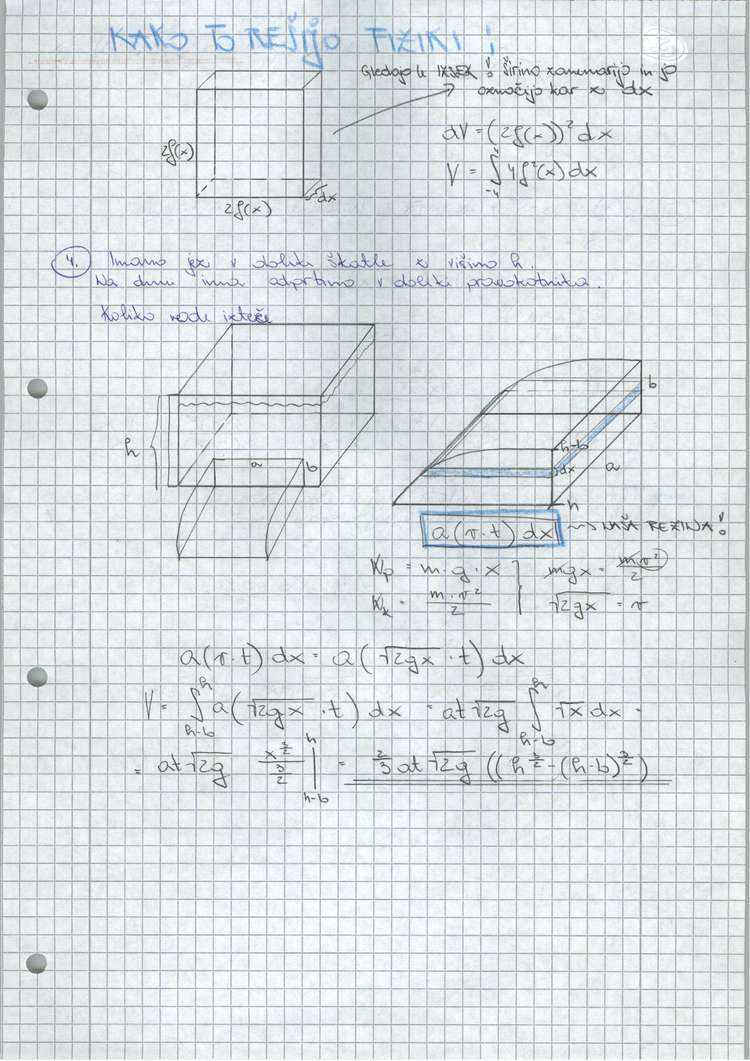 KAKO TO REŠIJO FIZIKI !
Gledajo le IZSEK! širino zanemarijo in jo
označijo kar z dx
dV = (2f(x))² dx
V = ∫₋₄⁴ 4f²(x) dx
2f(x)
2f(x)
dx
4. Imamo jez v obliki škatle z višino h.
Na dnu ima odprtino v obliki pravokotnika.
Koliko vode izteče
h
a
b
b
h-b
dx
a
h
a(v·t) dx ~> NAŠA REZINA!
Kp = m·g·x
mgx = m·v²/2
Kk = m·v²/2
√2gx = v
a(v·t) dx = a(√2gx · t) dx
V = ∫ₕ₋ᵦʰ a(√2gx · t) dx = at√2g ∫ₕ₋ᵦʰ √x dx =
= at√2g x^(3/2)/(3/2) |ₕ₋ᵦʰ = 2/3 at√2g ((h^(3/2) - (h-b)^(3/2))